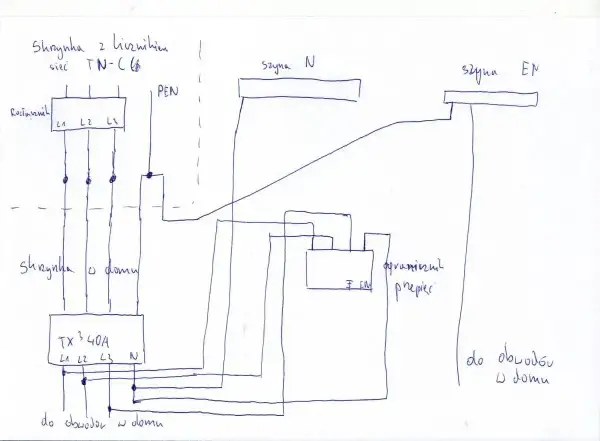 Skrzynka z licznikiem
sieć TN-C
szyna N
szyna EN
PEN
Rozłącznik
L1 L2 L3
Skrzynka w domu
TX³ 40A
L1 L2 L3 N
ogranicznik
przepięć
do obwodów w domu
do obwodów
w domu